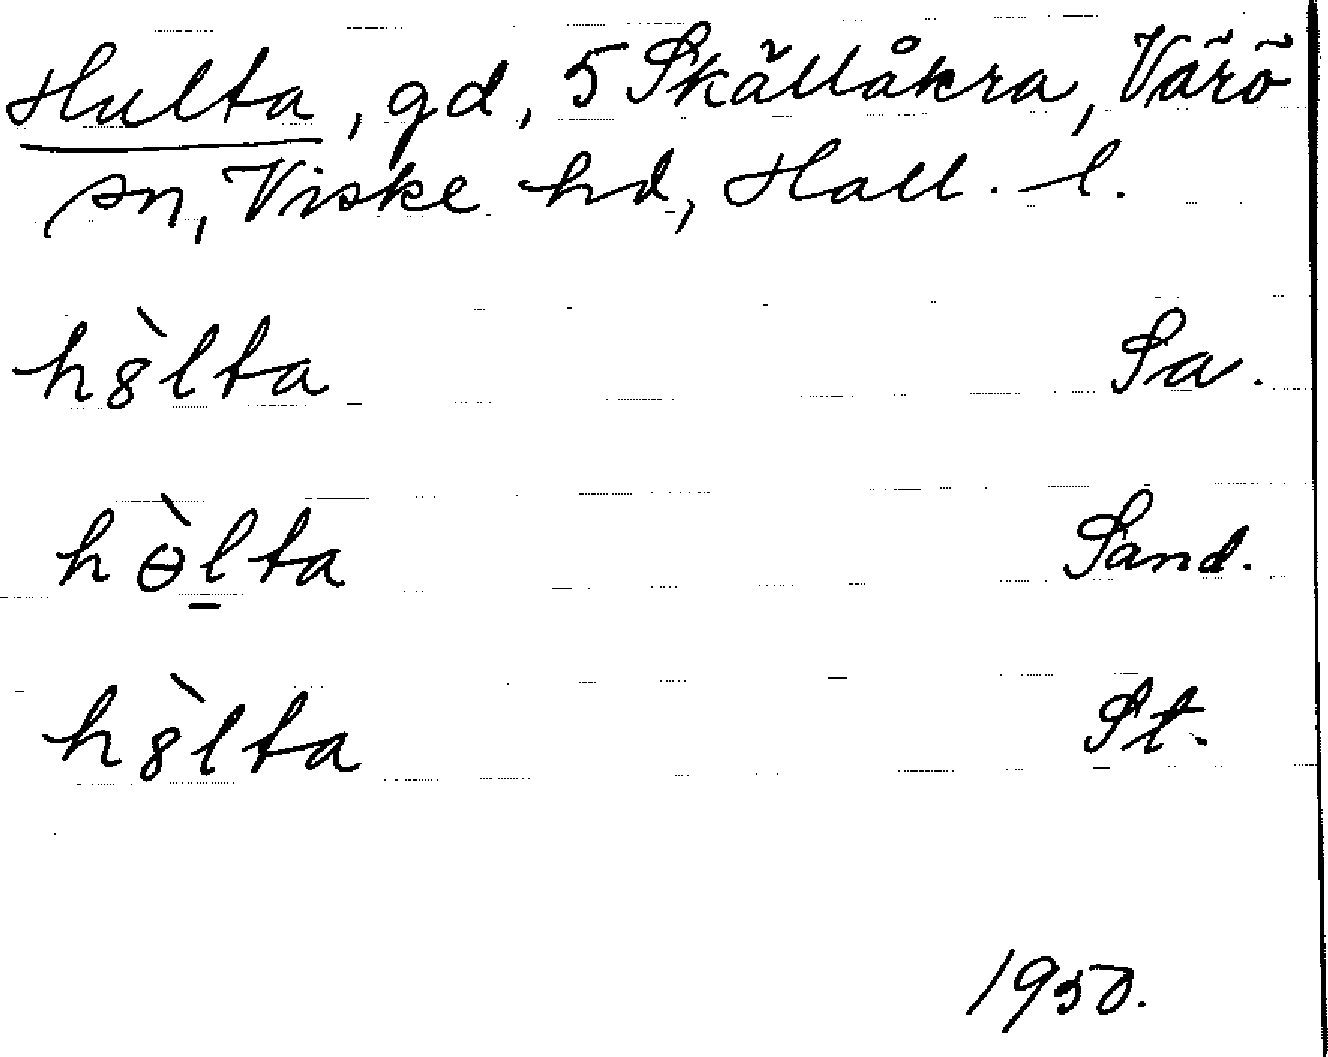 Hulta, gd, 5 Skällåkra, Värö
sn, Viske hd, Hall. l.
h8̀lta Sa.
hɵ̀l̠ta Sand.
h8̀lta St.
1950.